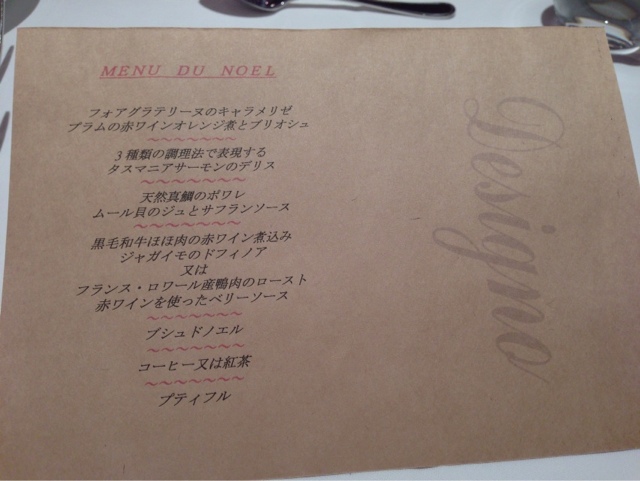 MENU DU NOEL
フォアグラテリーヌのキャラメリゼ
プラムの赤ワインオレンジ煮とブリオシュ
～～～～～～～
3種類の調理法で表現する
タスマニアサーモンのデリス
～～～～～～～～
天然真鯛のポワレ
ムール貝のジュとサフランソース
～～～～～～～
黒毛和牛ほほ肉の赤ワイン煮込み
ジャガイモのドフィノア
又は
フランス・ロワール産鴨肉のロースト
赤ワインを使ったベリーソース
～～～～～～～
ブシュドノエル
～～～～～～～
コーヒー又は紅茶
～～～～～～～
プティフル
Designo